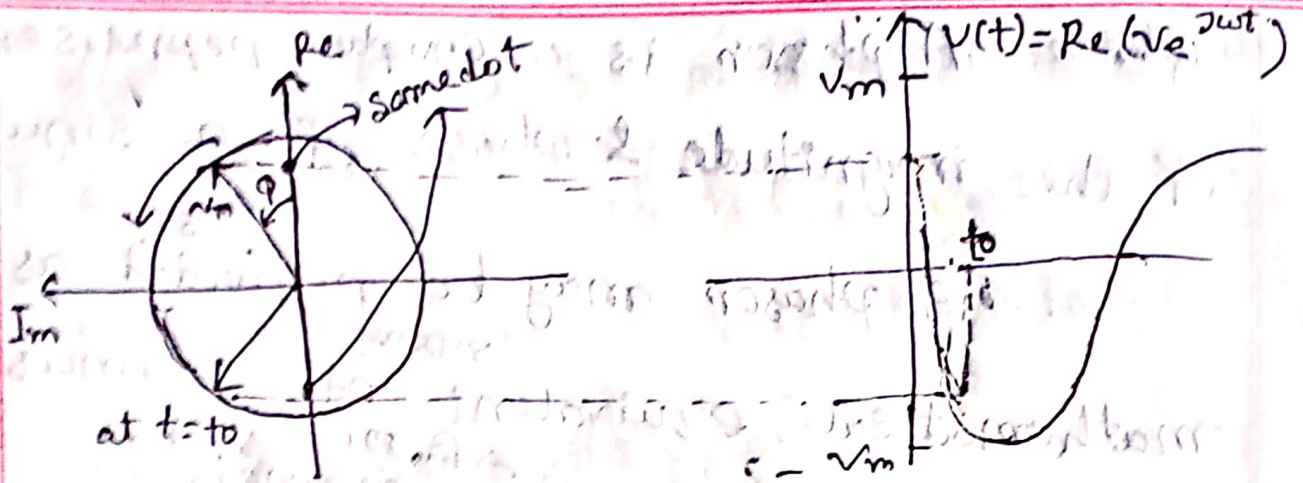 Re
same dot
φ
Vm
Im
at t=to
V(t) = Re(Ve^jωt)
Vm
to
- Vm